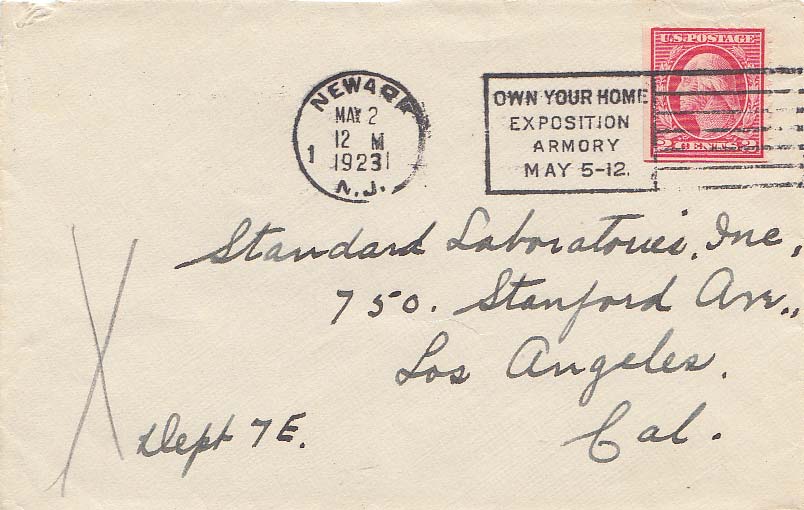 U.S. POSTAGE
2 CENTS 2
NEWARK
MAY 2
12 M
1 1923 1
N.J.
OWN YOUR HOME
EXPOSITION
ARMORY
MAY 5-12.
Standard Laboratories, Inc,
750. Stanford Ave.,
Los Angeles.
Cal.
Dept 7E.